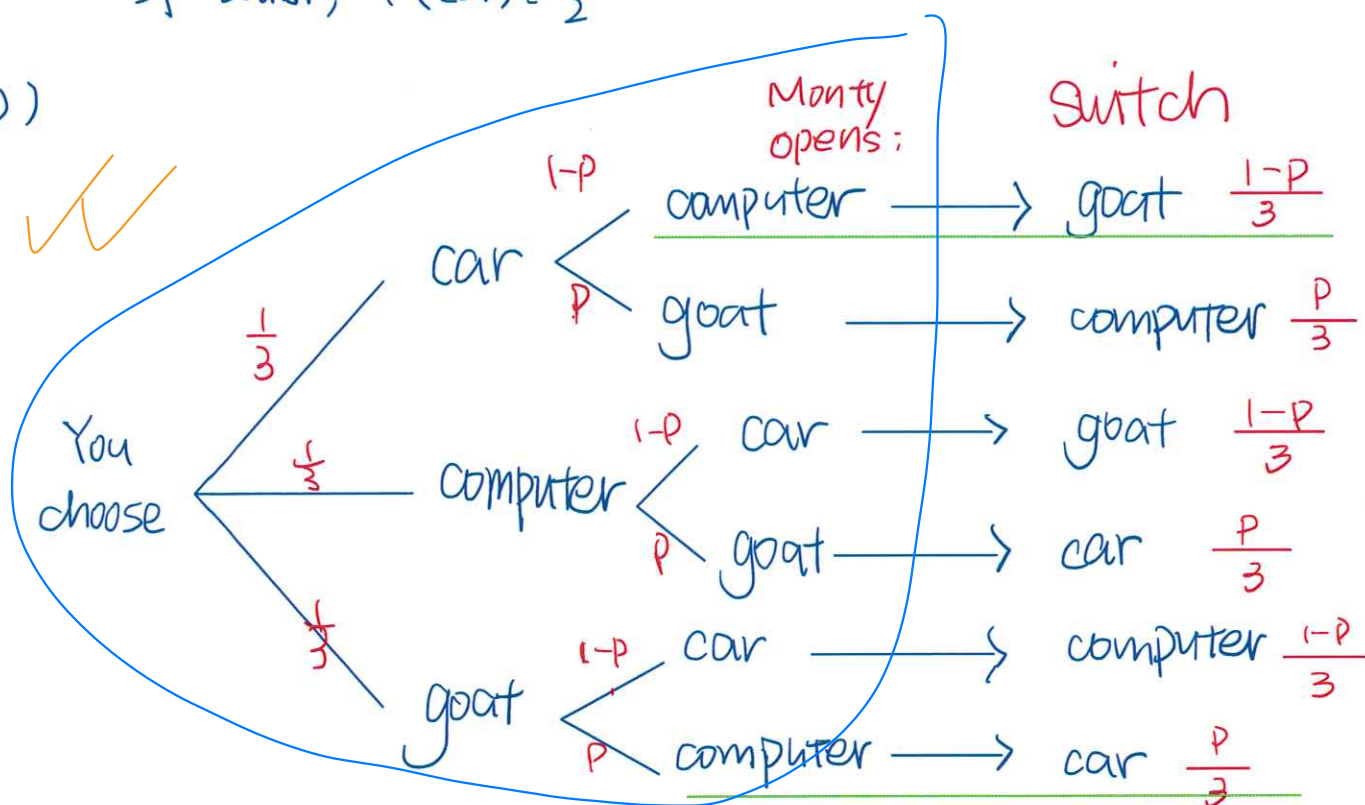 2
))
Monty opens:
Switch
You choose
1/3
car
1-P
computer → goat (1-P)/3
P
goat → computer P/3
1/3
computer
1-P
car → goat (1-P)/3
P
goat → car P/3
1/3
goat
1-P
car → computer (1-P)/3
P
computer → car P/3